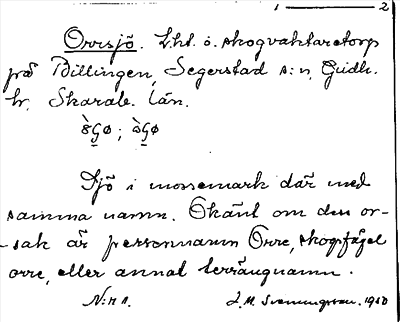 1 — 2
Orrsjö. Lht. o. skogvaktaretorp
på Billingen, Segerstad s:n, Gudh.
hr. Skarab. län.
Sjö i mossemark där med
samma namn. Okänt om den or-
-sak är personnamn Orre, skogsfågel
orre, eller annat terrängnamn.
N:r 1. J. M. Svenningsson. 1910